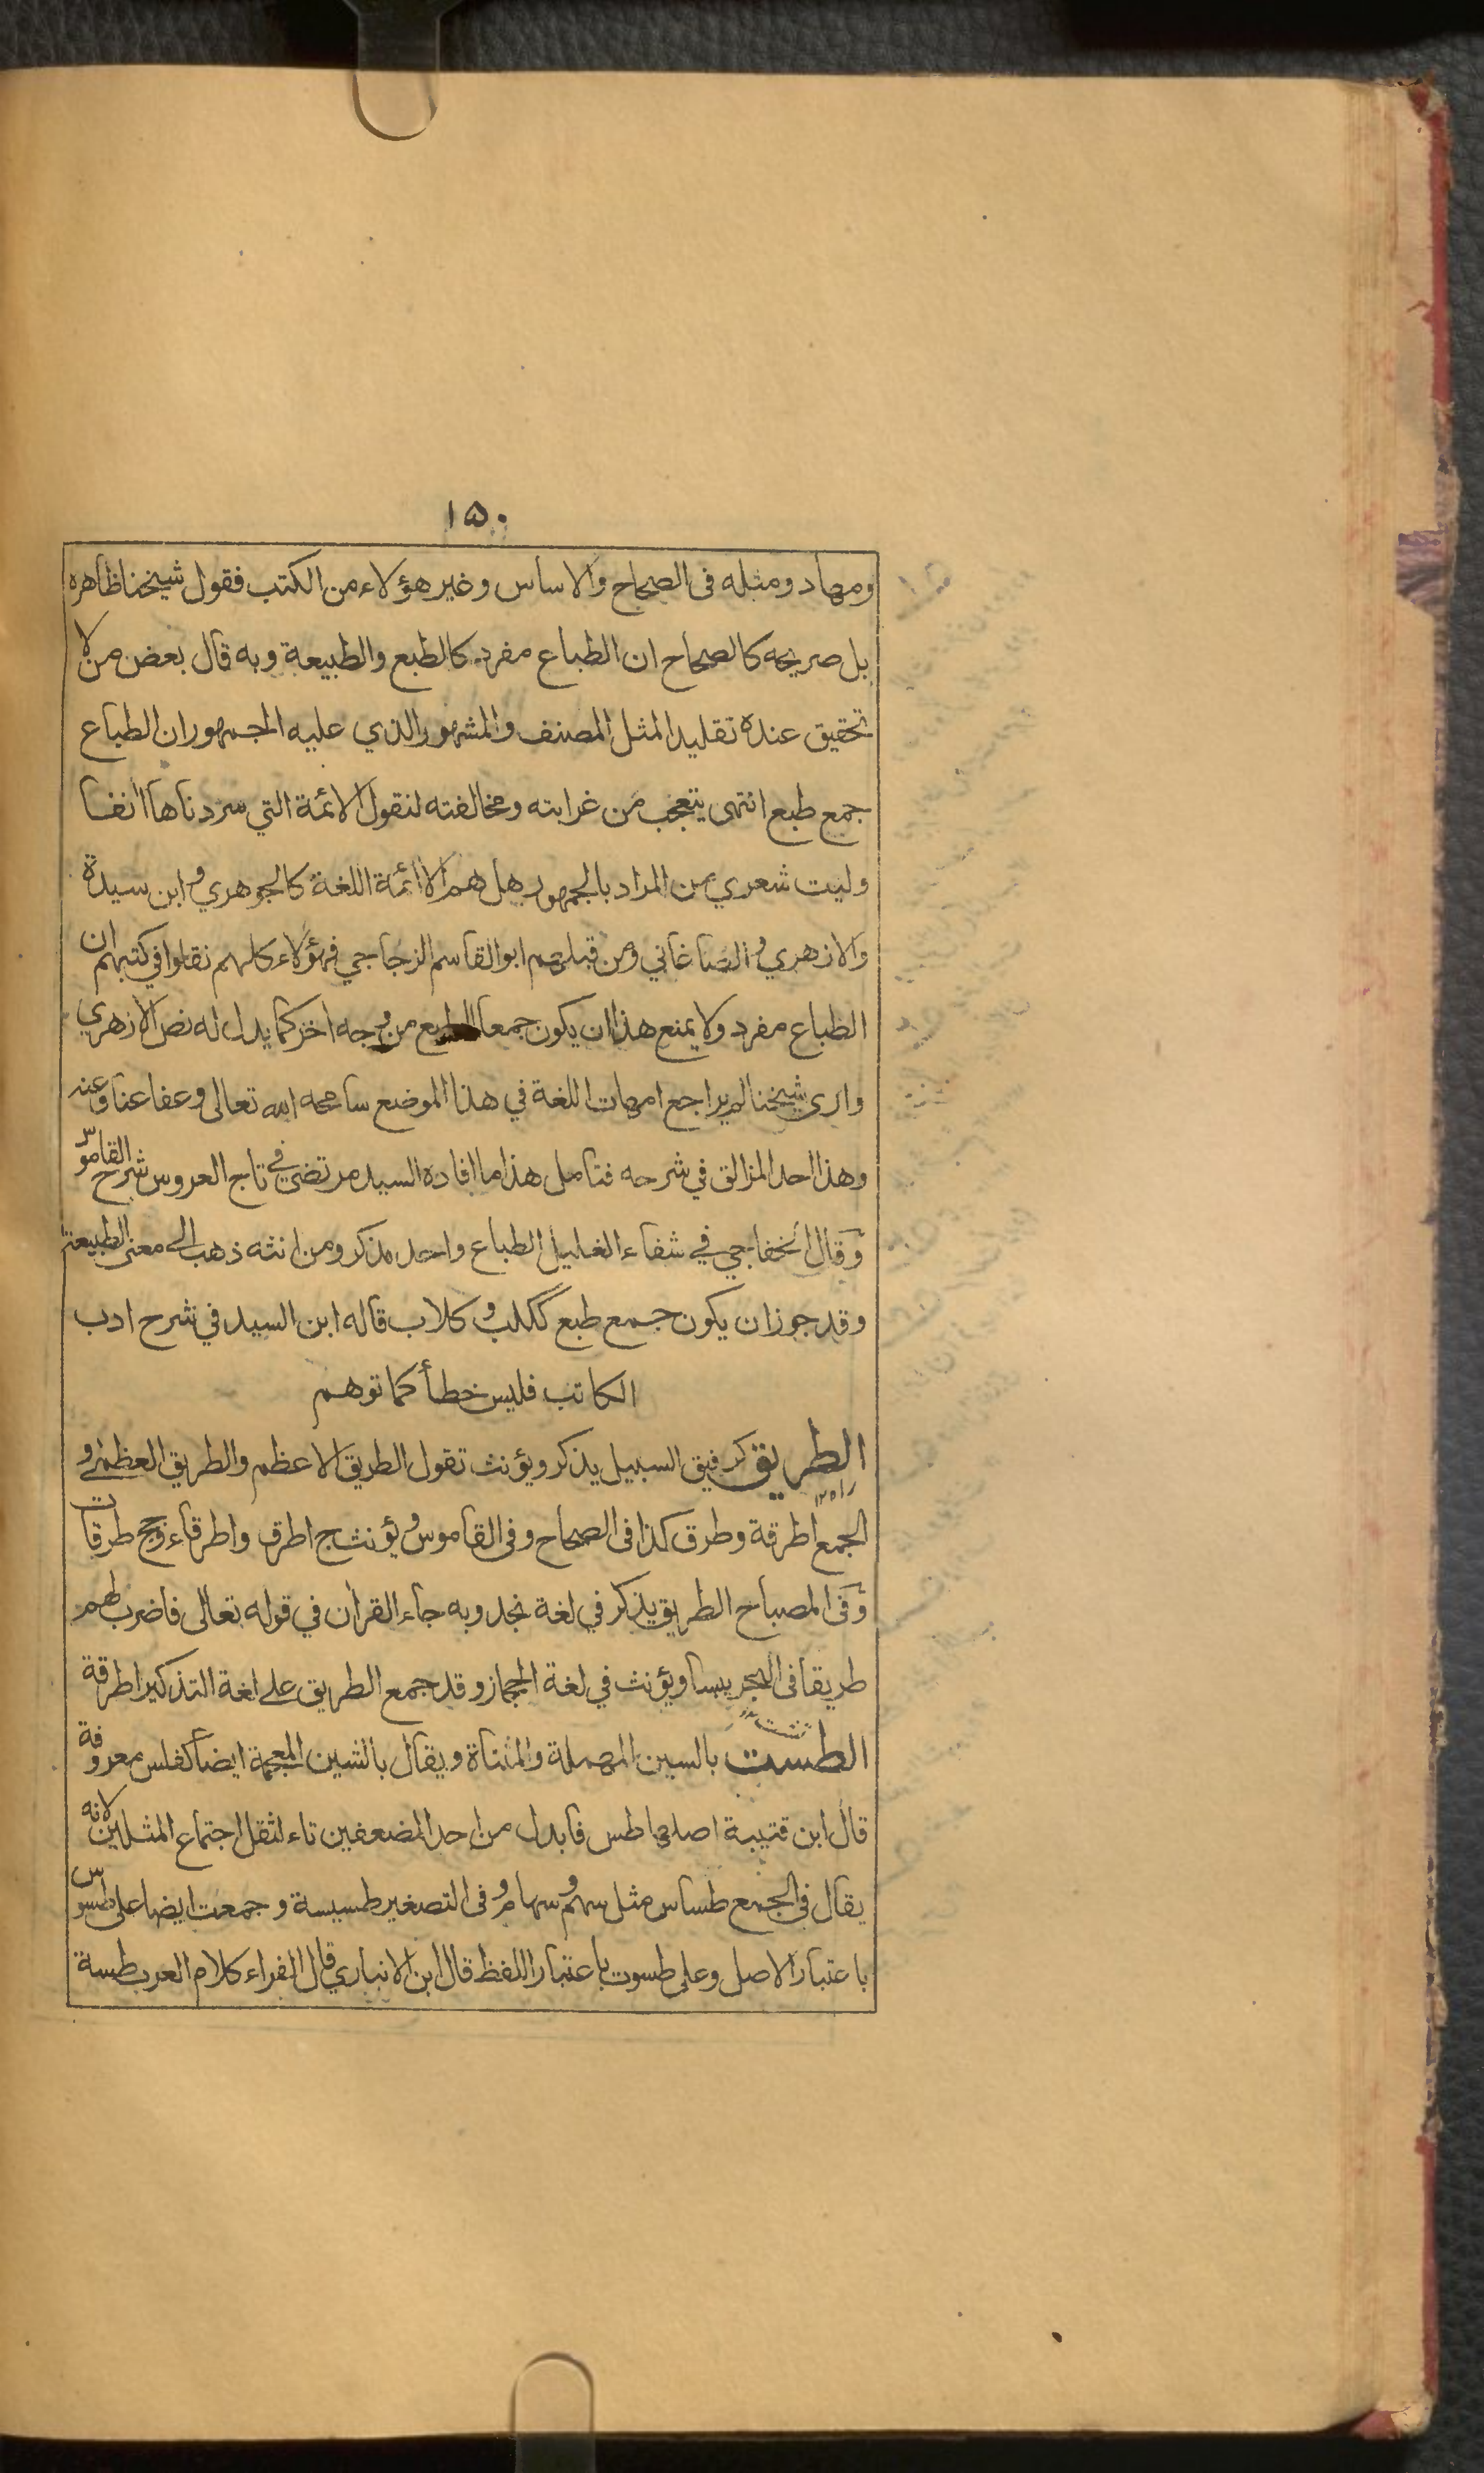 ۱۵۰
ومهاد ومثله فى الصحاح والاساس وغير هؤلاء من الكتب فقول شيخنا ظاهره
بل صريحه كالصحاح ان الطباع مفرد كالطبع والطبيعة وبه قال بعض من لا
تحقيق عنده تقليدا لمثل المصنف والمشهور الذي عليه الجمهور ان الطباع
جمع طبع انتهى يتعجب من غرابته ومخالفته لنقول الائمة التي سردناها انفا
وليت شعري من المراد بالجمهور هل هم الا ائمة اللغة كالجوهري وابن سيدة
والازهري والصاغاني ومن قبلهم ابو القاسم الزجاجي فهؤلاء كلهم نقلوا في كتبهم ان
الطباع مفرد ولا يمنع هذا ان يكون جمعا للطبع من وجه اخر كما يدل له نص الازهري
وارى شيخنا لم يراجع امهات اللغة في هذا الموضع سامحه الله تعالى وعفا عنا وعنه
وهذا احد المزالق في شرحه فتامل هذا ما افاده السيد مرتضى في تاج العروس شرح القاموس
وقال الخفاجي في شفاء الغليل الطباع واحد مذكر ومن انثه ذهب الى معنى الطبيعة
وقد جوز ان يكون جمع طبع ككلب وكلاب قاله ابن السيد في شرح ادب
الكاتب فليس خطأ كما توهم
الطريق كرفيق السبيل يذكر ويؤنث تقول الطريق الاعظم والطريق العظمى و
راه ۱۲
الجمع اطرقة وطرق كذا فى الصحاح وفى القاموس ويؤنث ج اطرق واطرقاء وجج طرقات
وفى المصباح الطريق يذكر في لغة نجد وبه جاء القران في قوله تعالى فاضرب لهم
طريقا فى البحر يبسا ويؤنث في لغة الحجاز وقد جمع الطريق على لغة التذكير اطرقة
تشت
الطست بالسين المهملة والمثناة ويقال بالشين المعجمة ايضا كفلس معروفة
قال ابن قتيبة اصلها طس فابدل من احد المضعفين تاء لثقل اجتماع المثلين لانه
يقال فى الجمع طساس مثل سهم وسهام وفى التصغير طسيسة وجمعت ايضا على طسوس
باعتبار الاصل وعلى طسوت باعتبار اللفظ قال ابن الانباري قال الفراء كلام العرب طسة